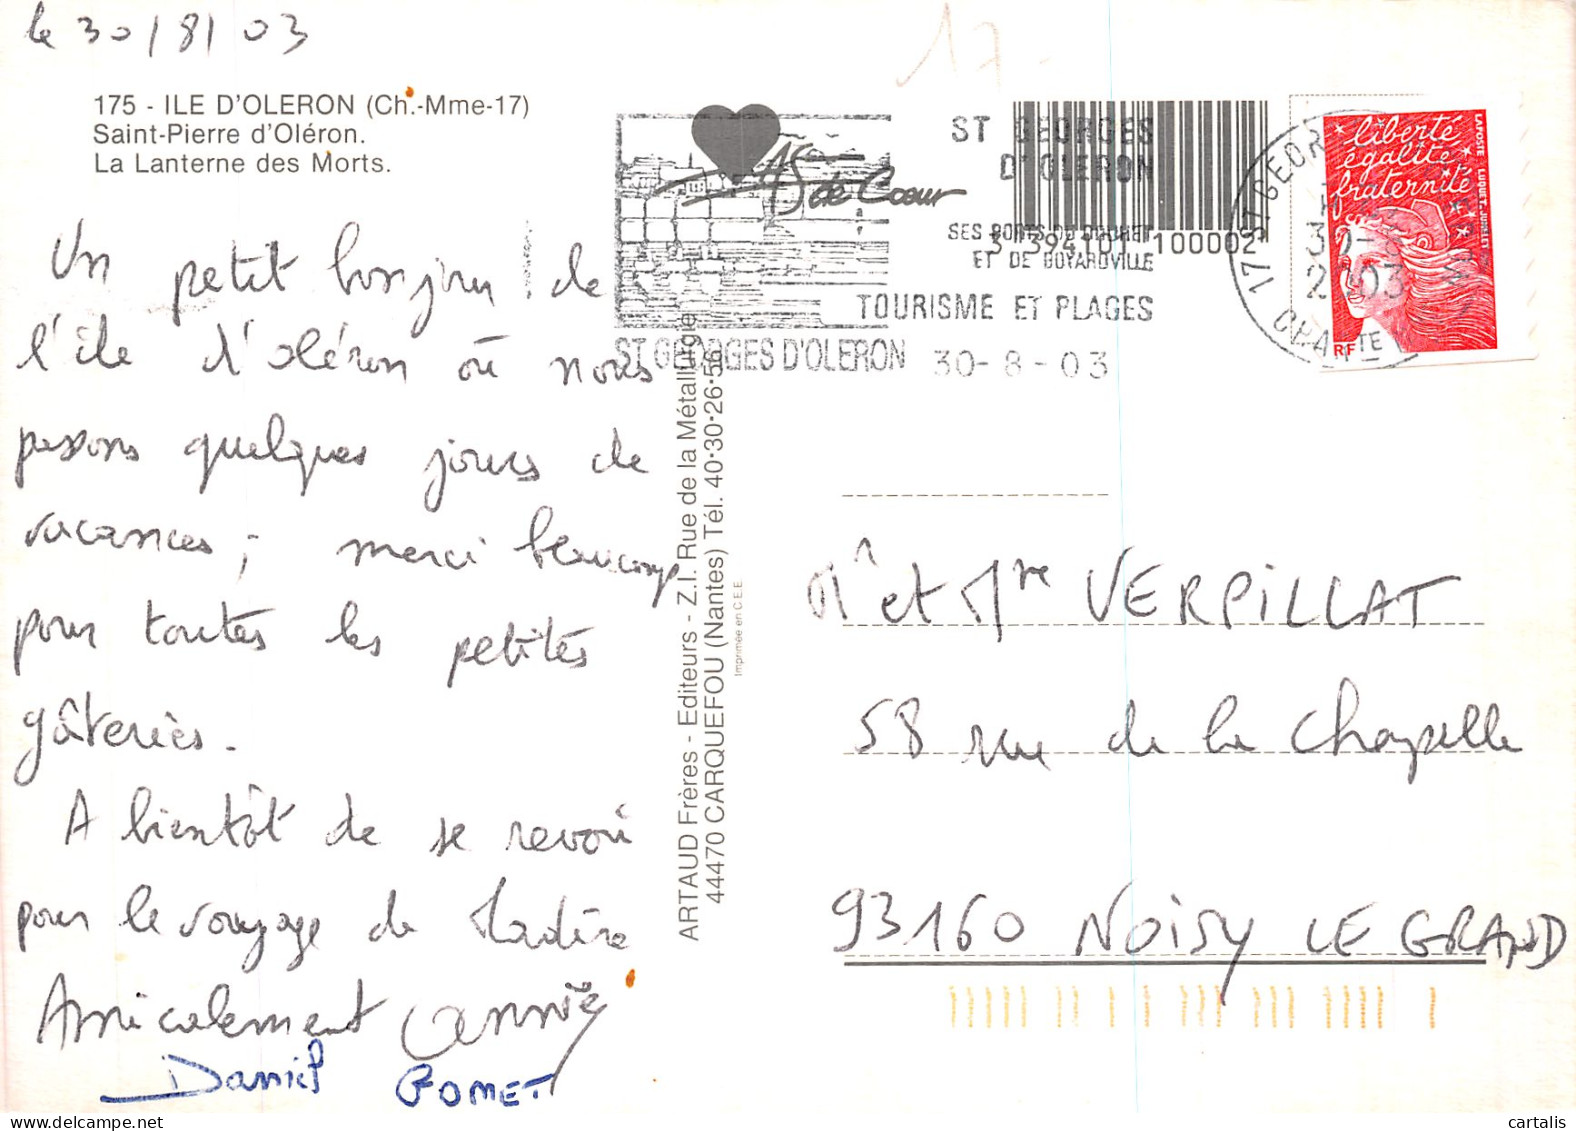 le 30/8/03
17
175 - ILE D'OLERON (Ch.-Mme-17)
Saint-Pierre d'Oléron.
La Lanterne des Morts.
Un petit bonjour de
l'île d'oléron où nous
passons quelques jours de
vacances ; merci beaucoup
pour toutes les petites
gâteries.
A bientôt de se revoir
pour le voyage de Madère
Amicalement Annie
Daniel GOMET
ARTAUD Frères - Editeurs - Z.I. Rue de la Métallurgie
44470 CARQUEFOU (Nantes) Tél. 40·30·26·56
Imprimée en C.E.E.
AS
de Coeur
ST GEORGES
D'OLERON
SES PORTS DU DOUHET
ET DE BOYARDVILLE
TOURISME ET PLAGES
ST GEORGES D'OLERON 30-8-03
100002
17 ST GEOR
30-8
2003
liberté
égalité
fraternité
LAPOSTE
RF
Mr et Mme VERPILLAT
58 rue de la Chapelle
93160 NOISY LE GRAND
cartalis